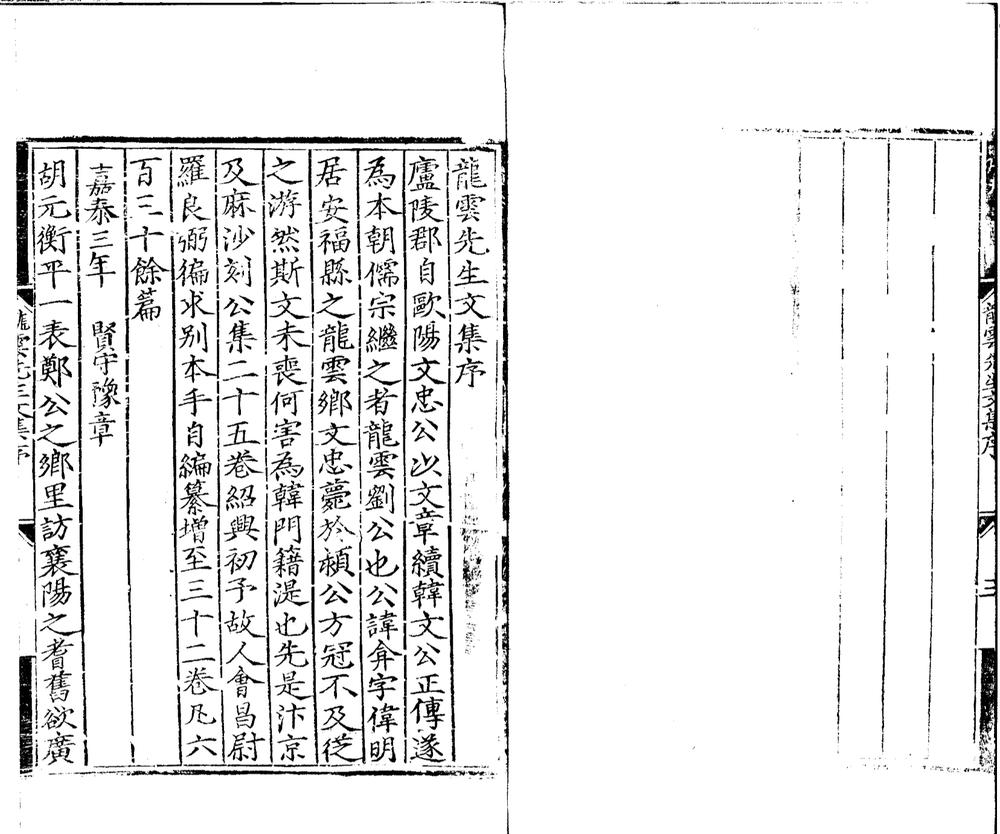 龍雲先生文集序
三
龍雲先生文集序
廬陵郡自歐陽文忠公以文章續韓文公正傳遂
為本朝儒宗繼之者龍雲劉公也公諱弇字偉明
居安福縣之龍雲鄉文忠薨於潁公方冠不及從
之游然斯文未喪何害為韓門籍湜也先是汴京
及麻沙刻公集二十五卷紹興初予故人會昌尉
羅良弼徧求別本手自編纂增至三十二卷凡六
百三十餘篇
嘉泰三年　賢守豫章
胡元衡平一表鄭公之鄉里訪襄陽之耆舊欲廣
龍雲先生文集序